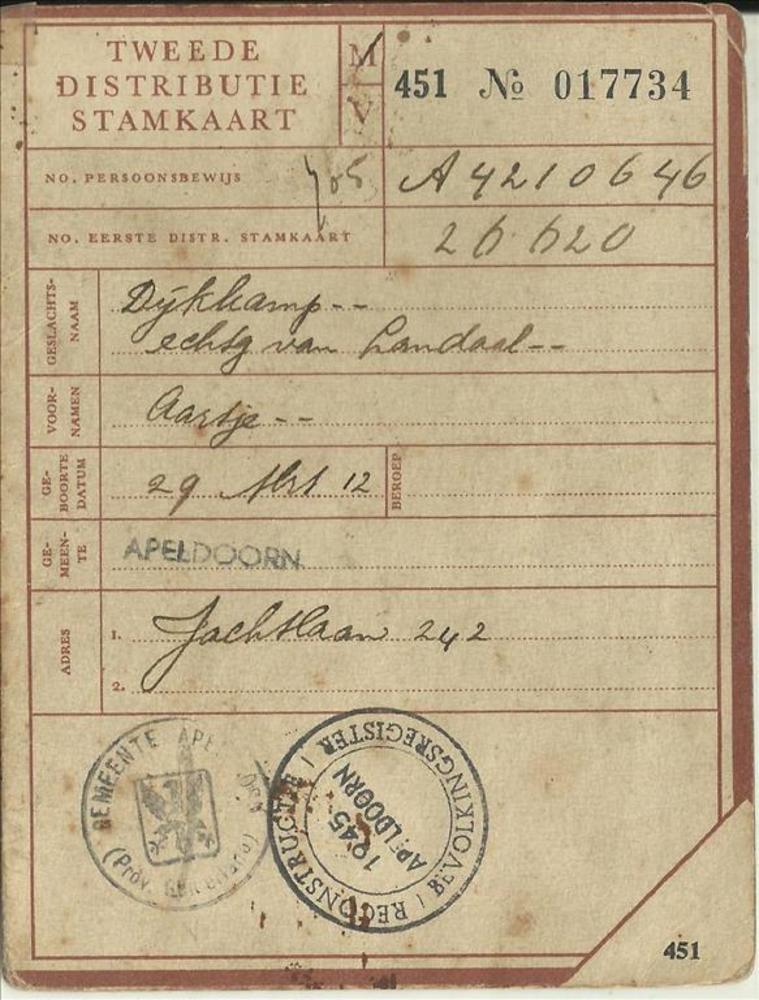 TWEEDE
DISTRIBUTIE
STAMKAART
M
V
451 № 017734
NO. PERSOONSBEWIJS
A 4210646
NO. EERSTE DISTR. STAMKAART
26620
GESLACHTS-
NAAM
Dijkkamp--
echtg van Landaal--
VOOR-
NAMEN
Aartje--
GE-
BOORTE
DATUM
29 Mrt 12
BEROEP
GE-
MEEN-
TE
APELDOORN
ADRES
1. Jachtlaan 242
2.
GEMEENTE APELDOORN
(Prov. Gelderland)
RECONSTRUCTIE BEVOLKINGSREGISTER
1945
APELDOORN
451